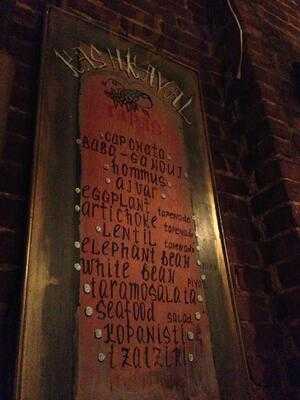 KASHKAVAL
TAPAS
CAPONATA
BABA-GANOUJ
HOMMUS
AJVAR
EGGPLANT TAPENADE
ARTICHOKE TAPENADE
LENTIL TAPENADE
ELEPHANT BEAN
WHITE BEAN
TARAMOSALATA
SEAFOOD SALAD
KOPANISTI
TZATZIKI